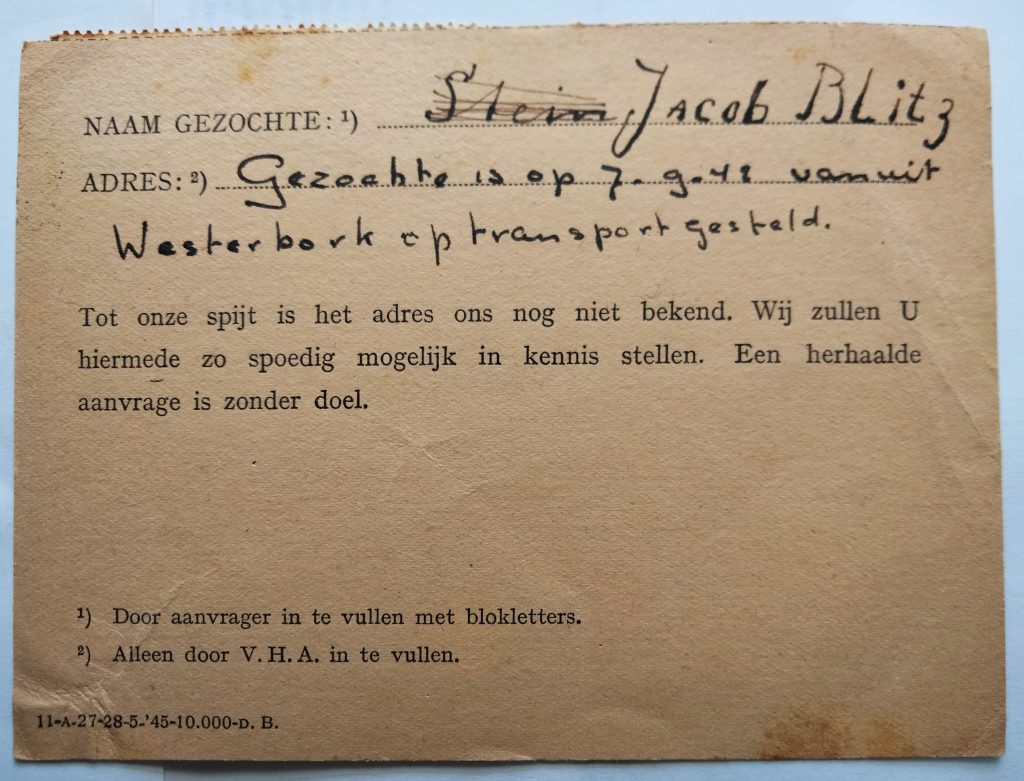 NAAM GEZOCHTE: ¹) Stein Jacob Blitz
ADRES: ²) Gezochte is op 7.9.42 vanuit
Westerbork op transport gesteld.
Tot onze spijt is het adres ons nog niet bekend. Wij zullen U
hiermede zo spoedig mogelijk in kennis stellen. Een herhaalde
aanvrage is zonder doel.
¹) Door aanvrager in te vullen met blokletters.
²) Alleen door V. H. A. in te vullen.
11-A-27-28-5-'45-10.000-D. B.